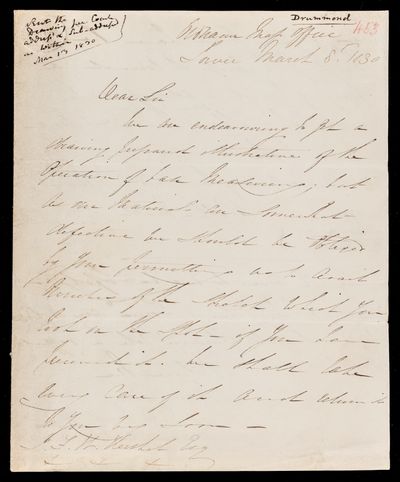 Sent the
Drawing per Couch
address & Sub-address
as within
Mar 13, 1830
Drummond
453
Ordnance Map Office
Tower March 8th 1830
Dear Sir
We are endeavouring to get a
drawing prepared illustrative of the
Operation of Base Measuring; but
as our Materials are somewhat
defective we should be obliged
by your permitting us to avail
ourselves of the Sketch which you
took on the spot – if you have
preserved it. We shall take
every care of it and return it
to you very soon –
J. F. W. Herschel Esq